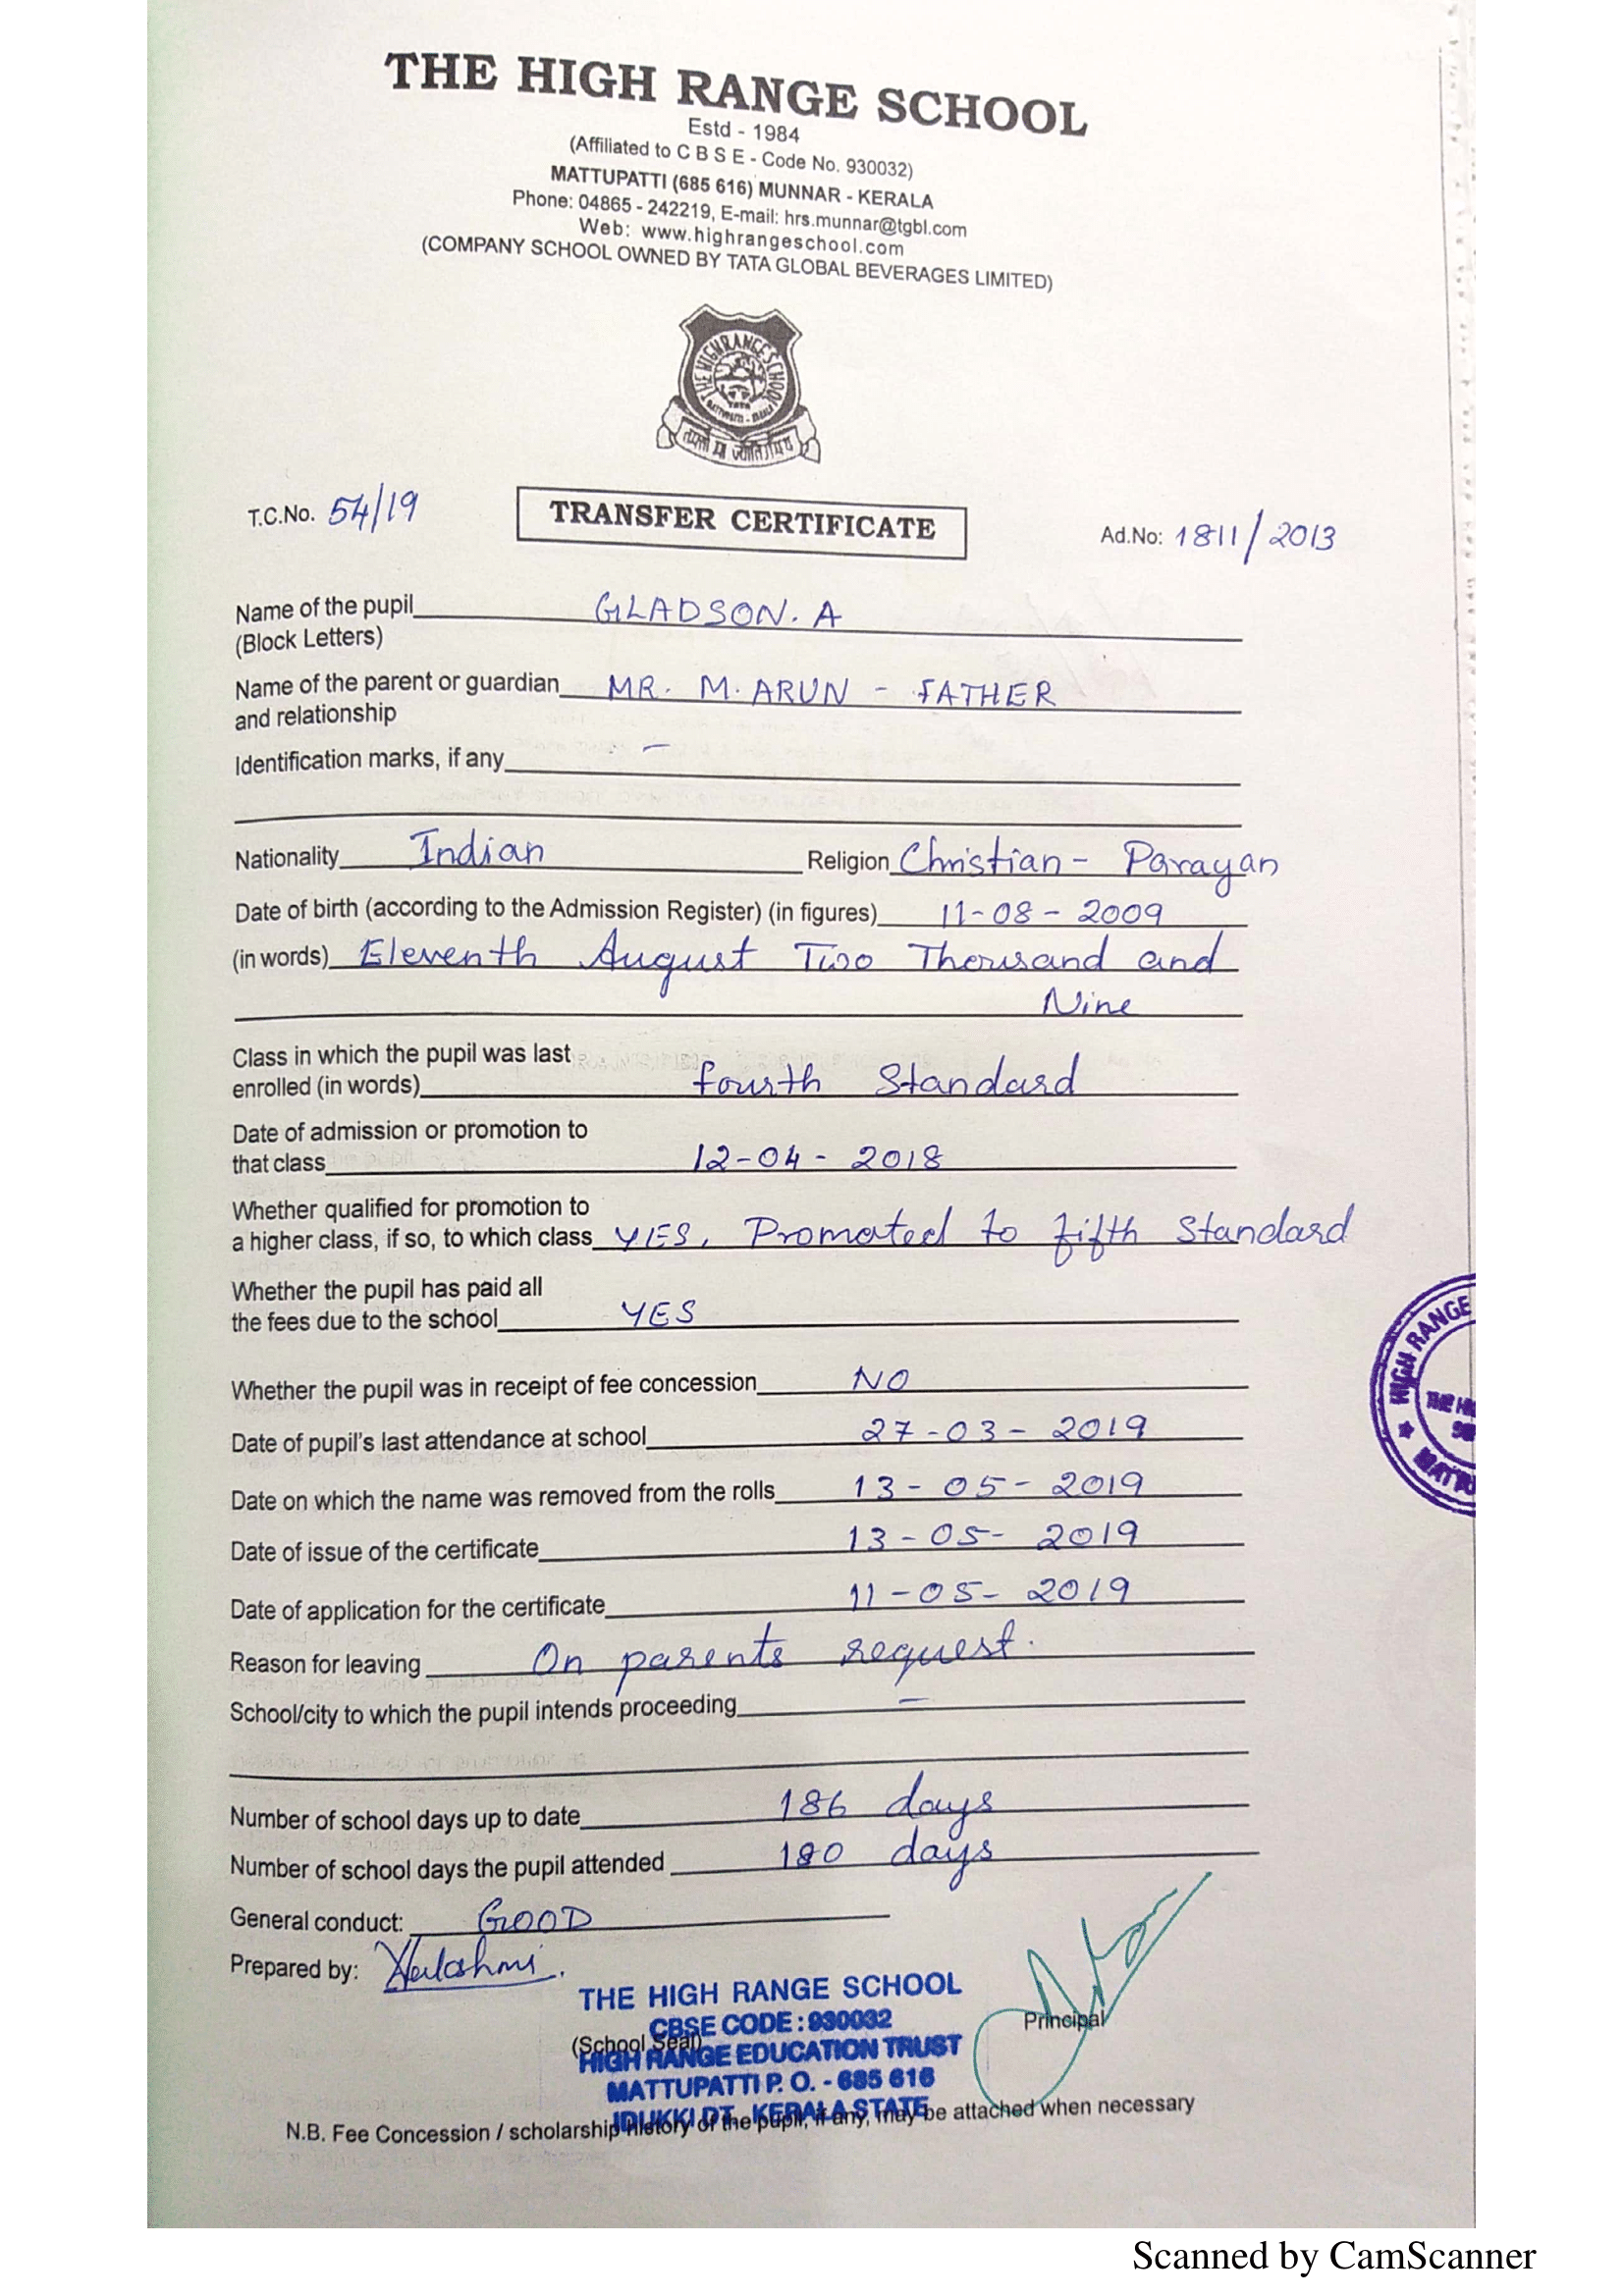 THE HIGH RANGE SCHOOL
Estd - 1984
(Affiliated to C B S E - Code No. 930032)
MATTUPATTI (685 616) MUNNAR - KERALA
Phone: 04865 - 242219, E-mail: hrs.munnar@tgbl.com
Web: www.highrangeschool.com
(COMPANY SCHOOL OWNED BY TATA GLOBAL BEVERAGES LIMITED)
THE HIGH RANGE SCHOOL
तमसो मा ज्योतिर्गमय
T.C.No. 54/19 TRANSFER CERTIFICATE Ad.No: 1811/2013
Name of the pupil GLADSON. A
(Block Letters)
Name of the parent or guardian MR. M. ARUN - FATHER
and relationship
Identification marks, if any -
Nationality Indian Religion Christian - Parayan
Date of birth (according to the Admission Register) (in figures) 11-08-2009
(in words) Eleventh August Two Thousand and
Nine
Class in which the pupil was last
enrolled (in words) fourth Standard
Date of admission or promotion to
that class 12-04-2018
Whether qualified for promotion to
a higher class, if so, to which class YES, Promoted to fifth Standard
Whether the pupil has paid all
the fees due to the school YES
Whether the pupil was in receipt of fee concession NO
Date of pupil's last attendance at school 27-03-2019
Date on which the name was removed from the rolls 13-05-2019
Date of issue of the certificate 13-05-2019
Date of application for the certificate 11-05-2019
Reason for leaving On parents request.
School/city to which the pupil intends proceeding -
Number of school days up to date 186 days
Number of school days the pupil attended 180 days
General conduct: GOOD
Prepared by:
THE HIGH RANGE SCHOOL
CBSE CODE : 930032
(School Seal) Principal
HIGH RANGE EDUCATION TRUST
MATTUPATTI P. O. - 685 616
IDUKKI DT., KERALA STATE
N.B. Fee Concession / scholarship history of the pupil, if any, may be attached when necessary
HIGH RANGE
Scanned by CamScanner